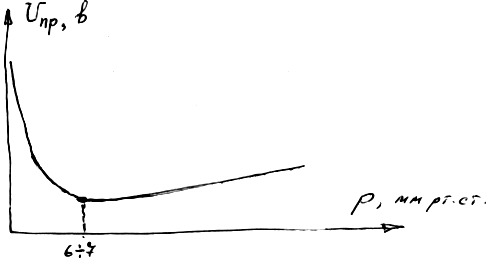 Uпр, в
ρ, мм рт.ст.
6÷7